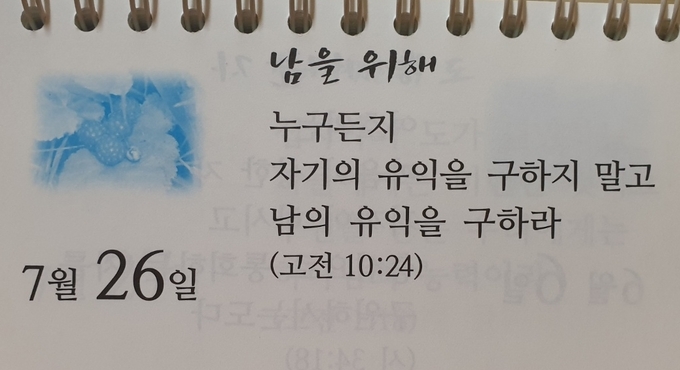 남을 위해
누구든지
자기의 유익을 구하지 말고
남의 유익을 구하라
(고전 10:24)
7월 26일